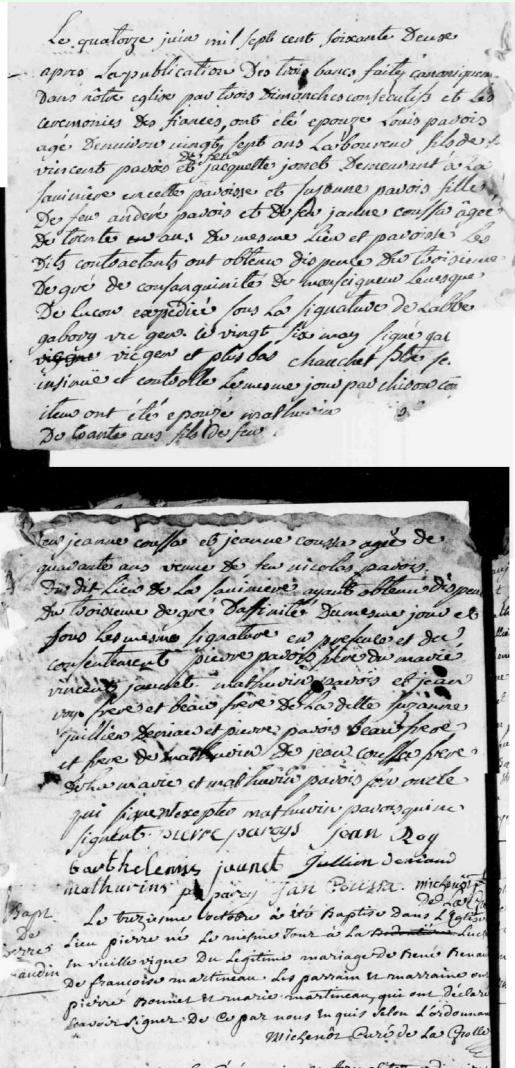 Le quatorze juin mil sept cent soixante Deuse
apres La publication Des trois bancs faitej canoniquem
Dans nôtre eglise par trois Dimanches consecutifs et Les
ceremonies des fiances, ont été epouze Louis pavois
agé Denviron vingt sept ans Laboureur fils de
vincent pavois et de feue jacquette jonet Demeurant à La
saminiere en cette paroisse et suzanne pavois fille
De feu andere pavois et de feu janne coussa âgée
de trente ans Du mesme Lieu et paroisse Les
Dits contractants ont obtenu dispence du troisieme
De gré de consanguinité de monseigneur Levesque
De Lucon expedié sous La signature de Labbe
gabory vic gen. le vingt six may signé gab
vic gen et plus bas chauchet
insinué et controlle Le mesme jour par chidon con
item ont été epouzé mathurin
De trante ans fils de feu
feu jeanne coussa et jeanne coussa agée de
quarante ans veuve de feu nicolas pavois,
du dit Lieu de La saminiere ayant obtenu dispen
Du troisieme degré Daffinité Du mesme jour et
sous Les mesme signature en presence et du
consentement pierre pavois frere du marié
vincent jaunet mathurin pavois et jean
roy frere et beau frere de La ditte suzanne
jullien deriau et pierre pavois beau frere
et frere de mathurin De jean coussa frere
de la mariée et mathurin pavois son oncle
qui signent excepté mathurin pavois qui ne
signent. pierre paroys Jean Roy
barthelemis jaunet Jullien deriaud
mathurins p parois Jan Coussa. michenôt
de La
Bapt.
De
pierre
audin
Le treziesme octobre à été Baptise dans L'Eglise
Lieu pierre né Le mesme Jour à La Luc
En vieille vigne du Legitime mariage de René Renau
de francoise martineau Les parrain et marraine on
pierre Bonnet et marie martineau, qui ont déclaré
scavoir signer de ce par nous Enquis selon L'ordonnan
Michenôt Curé de La Grolle